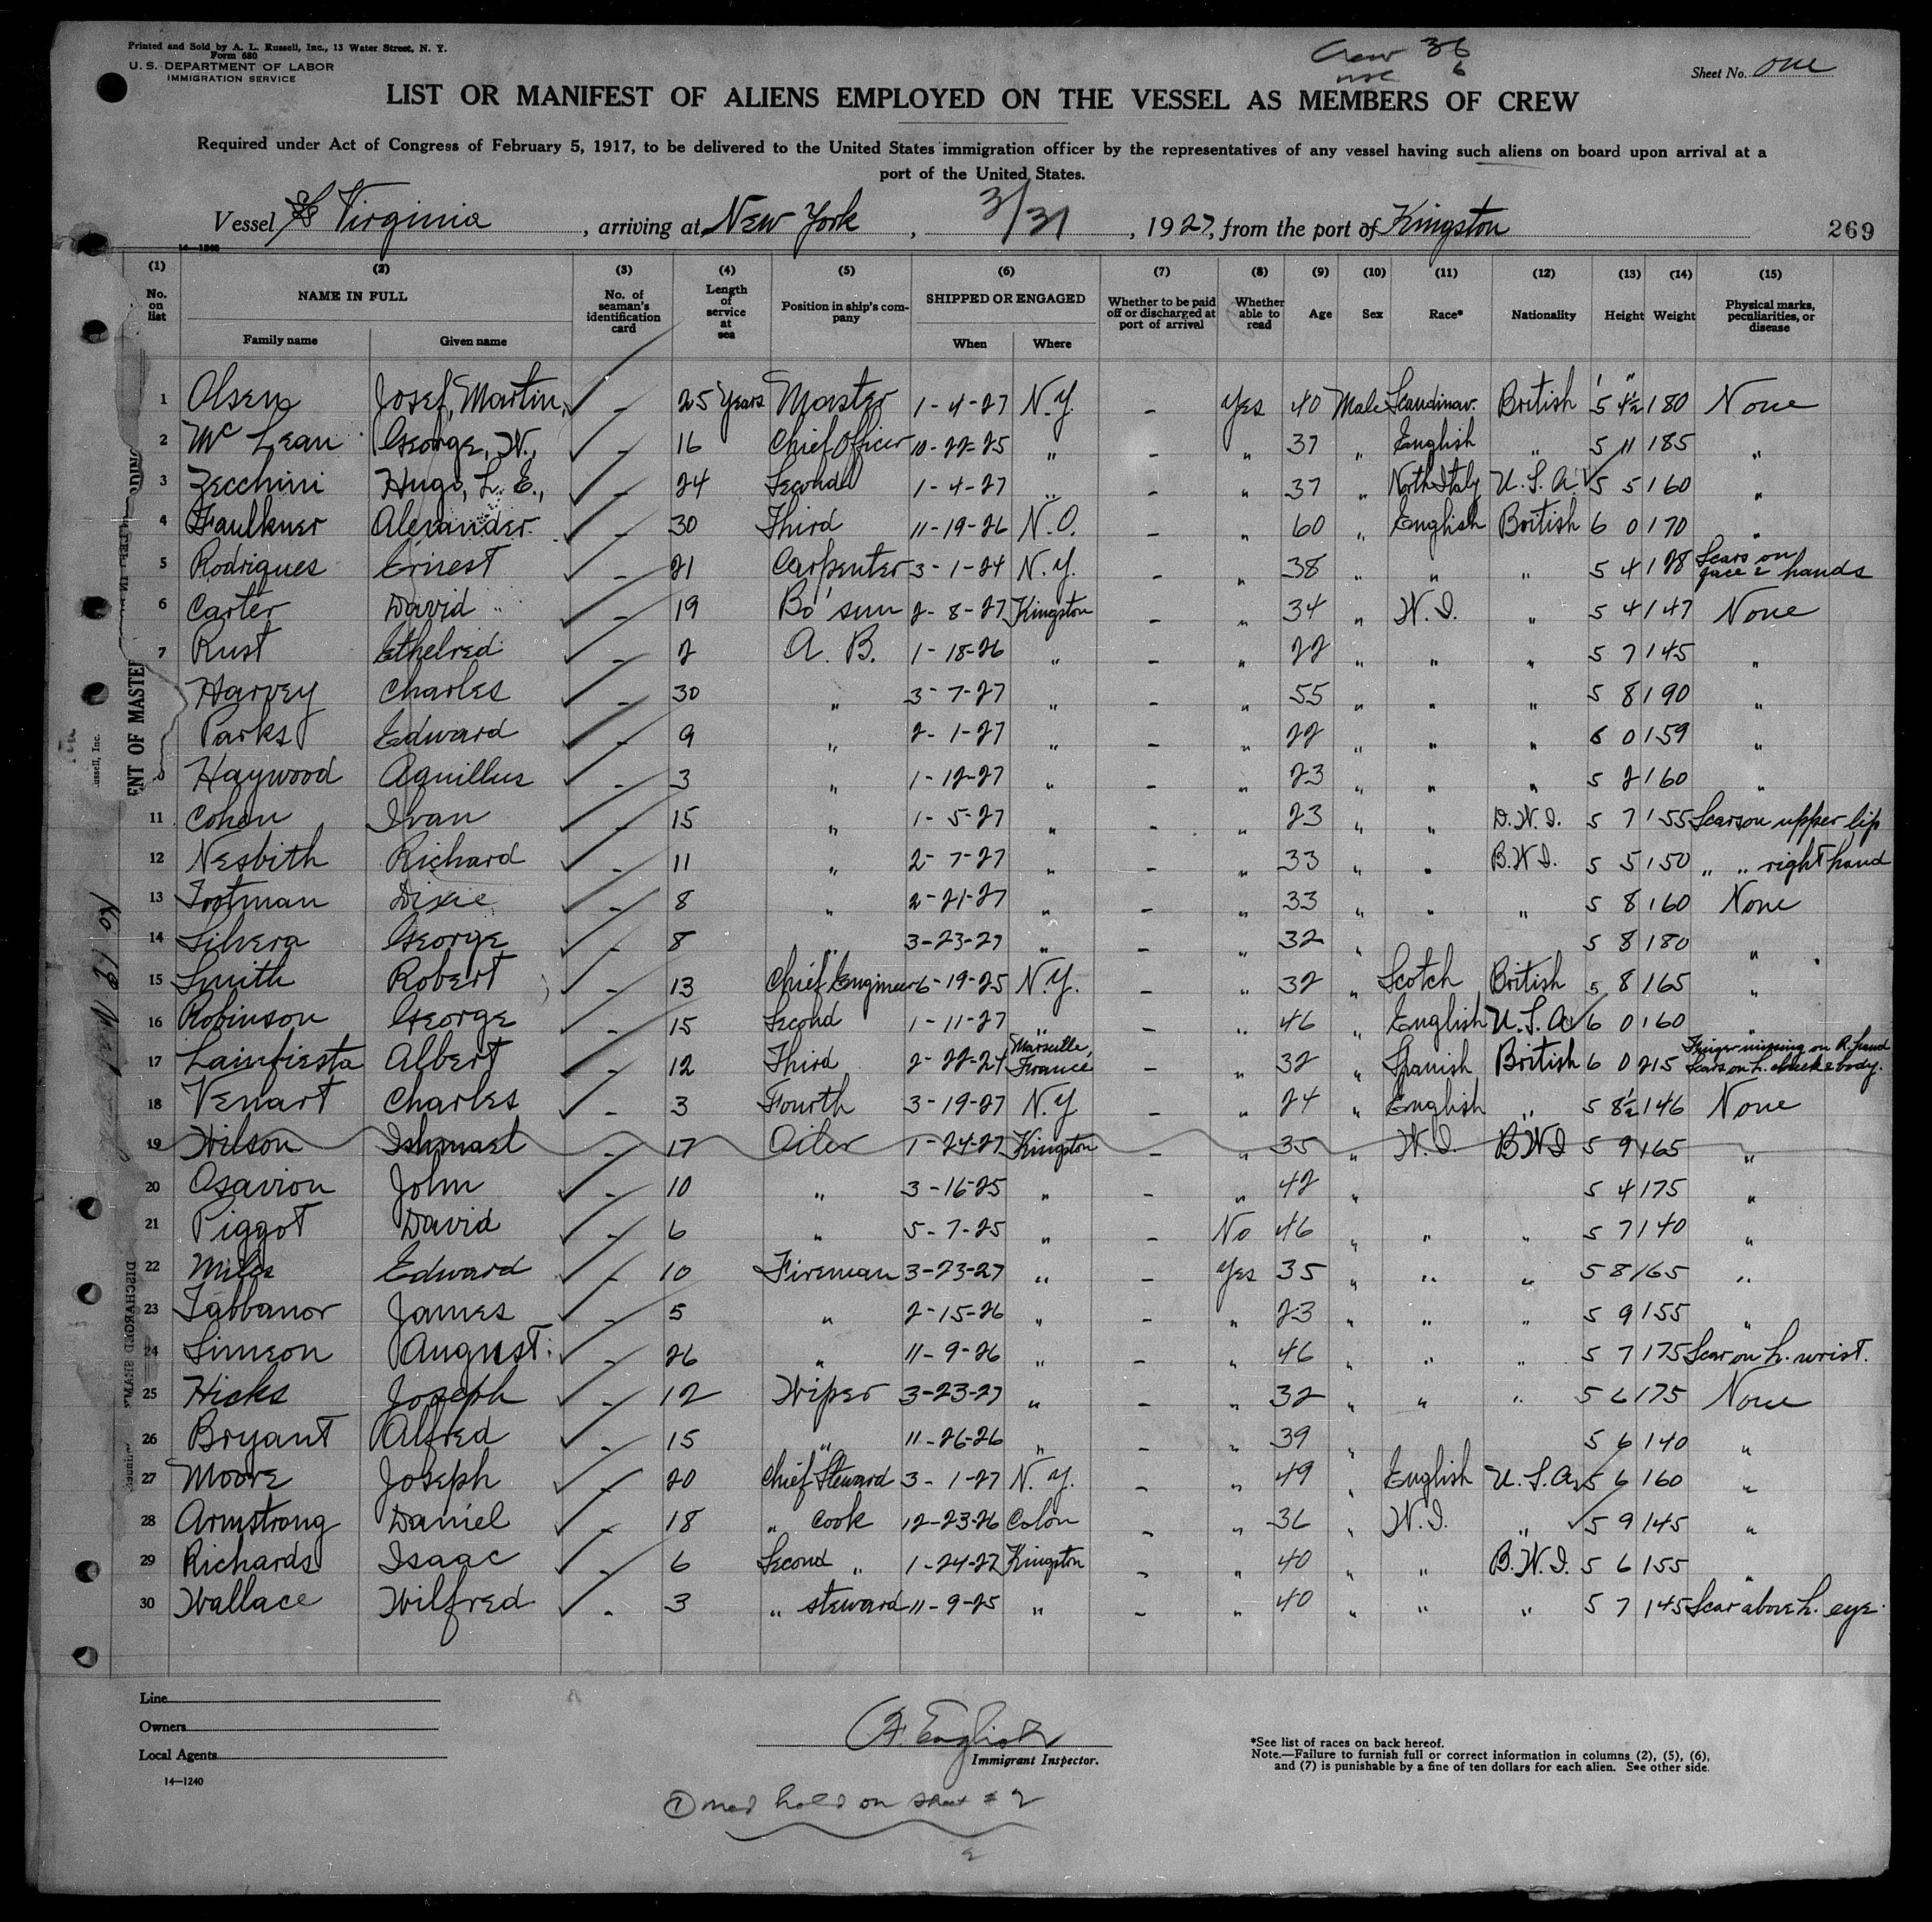 Printed and Sold by A. L. Russell, Inc., 13 Water Street, N. Y.
Form 680
U. S. DEPARTMENT OF LABOR
IMMIGRATION SERVICE
Crew 36
6
Sheet No. one
LIST OR MANIFEST OF ALIENS EMPLOYED ON THE VESSEL AS MEMBERS OF CREW
Required under Act of Congress of February 5, 1917, to be delivered to the United States immigration officer by the representatives of any vessel having such aliens on board upon arrival at a
port of the United States.
Vessel SS Virginia, arriving at New York, 3/31, 1927, from the port of Kingston
269
14—1240
(1) (2) (3) (4) (5) (6) (7) (8) (9) (10) (11) (12) (13) (14) (15)
No. on list NAME IN FULL No. of seaman's identification card Length of service at sea Position in ship's company SHIPPED OR ENGAGED Whether to be paid off or discharged at port of arrival Whether able to read Age Sex Race* Nationality Height Weight Physical marks, peculiarities, or disease
Family name Given name When Where
1 Olsen Josef, Martin, – 25 Years Master 1-4-27 N.Y. – Yes 40 Male Scandinav. British 5' 4½" 180 None
2 McLean George, W., – 16 Chief Officer 10-22-25 " – " 37 " English " 5 11 185 "
3 Zecchini Hugo, L. E., – 24 Second 1-4-27 " – " 37 " North Italy U.S.A. 5 5 160 "
4 Faulkner Alexander. – 30 Third 11-19-26 N.O. – " 60 " English British 6 0 170 "
5 Rodriques Ernest – 21 Carpenter 3-1-24 N.Y. – " 38 " " " 5 4 128 Scars on face & hands
6 Carter David – 19 Bo'sun 2-8-27 Kingston – " 34 " W.I. " 5 4 147 None
7 Rust Ethelred – 2 A. B. 1-18-26 " – " 22 " " " 5 7 145 "
Harvey Charles – 30 " 3-7-27 " – " 55 " " " 5 8 190 "
Parks Edward – 9 " 2-1-27 " – " 22 " " " 6 0 159 "
Haywood Aquillus – 3 " 1-12-27 " – " 23 " " " 5 2 160 "
11 Cohen Ivan – 15 " 1-5-27 " – " 23 " " D.W.I. 5 7 155 Scars on upper lip
12 Nesbith Richard – 11 " 2-7-27 " – " 33 " " B.W.I. 5 5 150 " " right hand
13 Tostman Dixie – 8 " 2-21-27 " – " 33 " " " 5 8 160 None
14 Silvera George – 8 " 3-23-27 " – " 32 " 5 8 180 "
15 Smith Robert – 13 Chief Engineer 6-19-25 N.Y. – " 32 " Scotch British 5 8 165 "
16 Robinson George – 15 Second 1-11-27 " – " 46 " English U.S.A. 6 0 160 "
17 Lainfiesta Albert – 12 Third 2-22-24 Marseille, France – " 32 " Spanish British 6 0 215 Finger missing on R. hand Scars on L. cheek & body.
18 Venart Charles – 3 Fourth 3-19-27 N.Y. – " 24 " English " 5 8½ 146 None
19 Wilson Ishmael – 17 Oiler 1-24-27 Kingston – " 35 " W.I. B.W.I 5 9 165 "
20 Osavion John – 10 " 3-16-25 " – " 42 " 5 4 175 "
21 Piggot David – 6 " 5-7-25 " – No 46 " " " 5 7 140 "
22 Miles Edward – 10 Fireman 3-23-27 " – Yes 35 " " " 5 8 165 "
23 Tabbanor James – 5 " 2-15-26 " – " 23 " " " 5 9 155 "
24 Simeon August – 26 " 11-9-26 " – " 46 " " " 5 7 175 Scar on L. wrist.
25 Hicks Joseph – 12 Wiper 3-23-27 " – " 32 " " " 5 6 175 None
26 Bryant Alfred – 15 " 11-26-26 " – " 39 " 5 6 140 "
27 Moore Joseph – 20 Chief Steward 3-1-27 N.Y. – " 49 " English U.S.A. 5 6 160 "
28 Armstrong Daniel – 18 " Cook 12-23-26 Colon – " 36 " W.I. " 5 9 145 "
29 Richards Isaac – 6 Second " 1-24-27 Kingston – " 40 " " B.W.I. 5 6 155 "
30 Wallace Wilfred – 3 " steward 11-9-25 " – " 40 " " " 5 7 145 Scar above L. eye.
ENT OF MASTE
ussell, Inc.
Line
Owners
Local Agents
14—1240
English
Immigrant Inspector.
*See list of races on back hereof.
Note.—Failure to furnish full or correct information in columns (2), (5), (6),
and (7) is punishable by a fine of ten dollars for each alien. See other side.
① med hold on sheet # 2